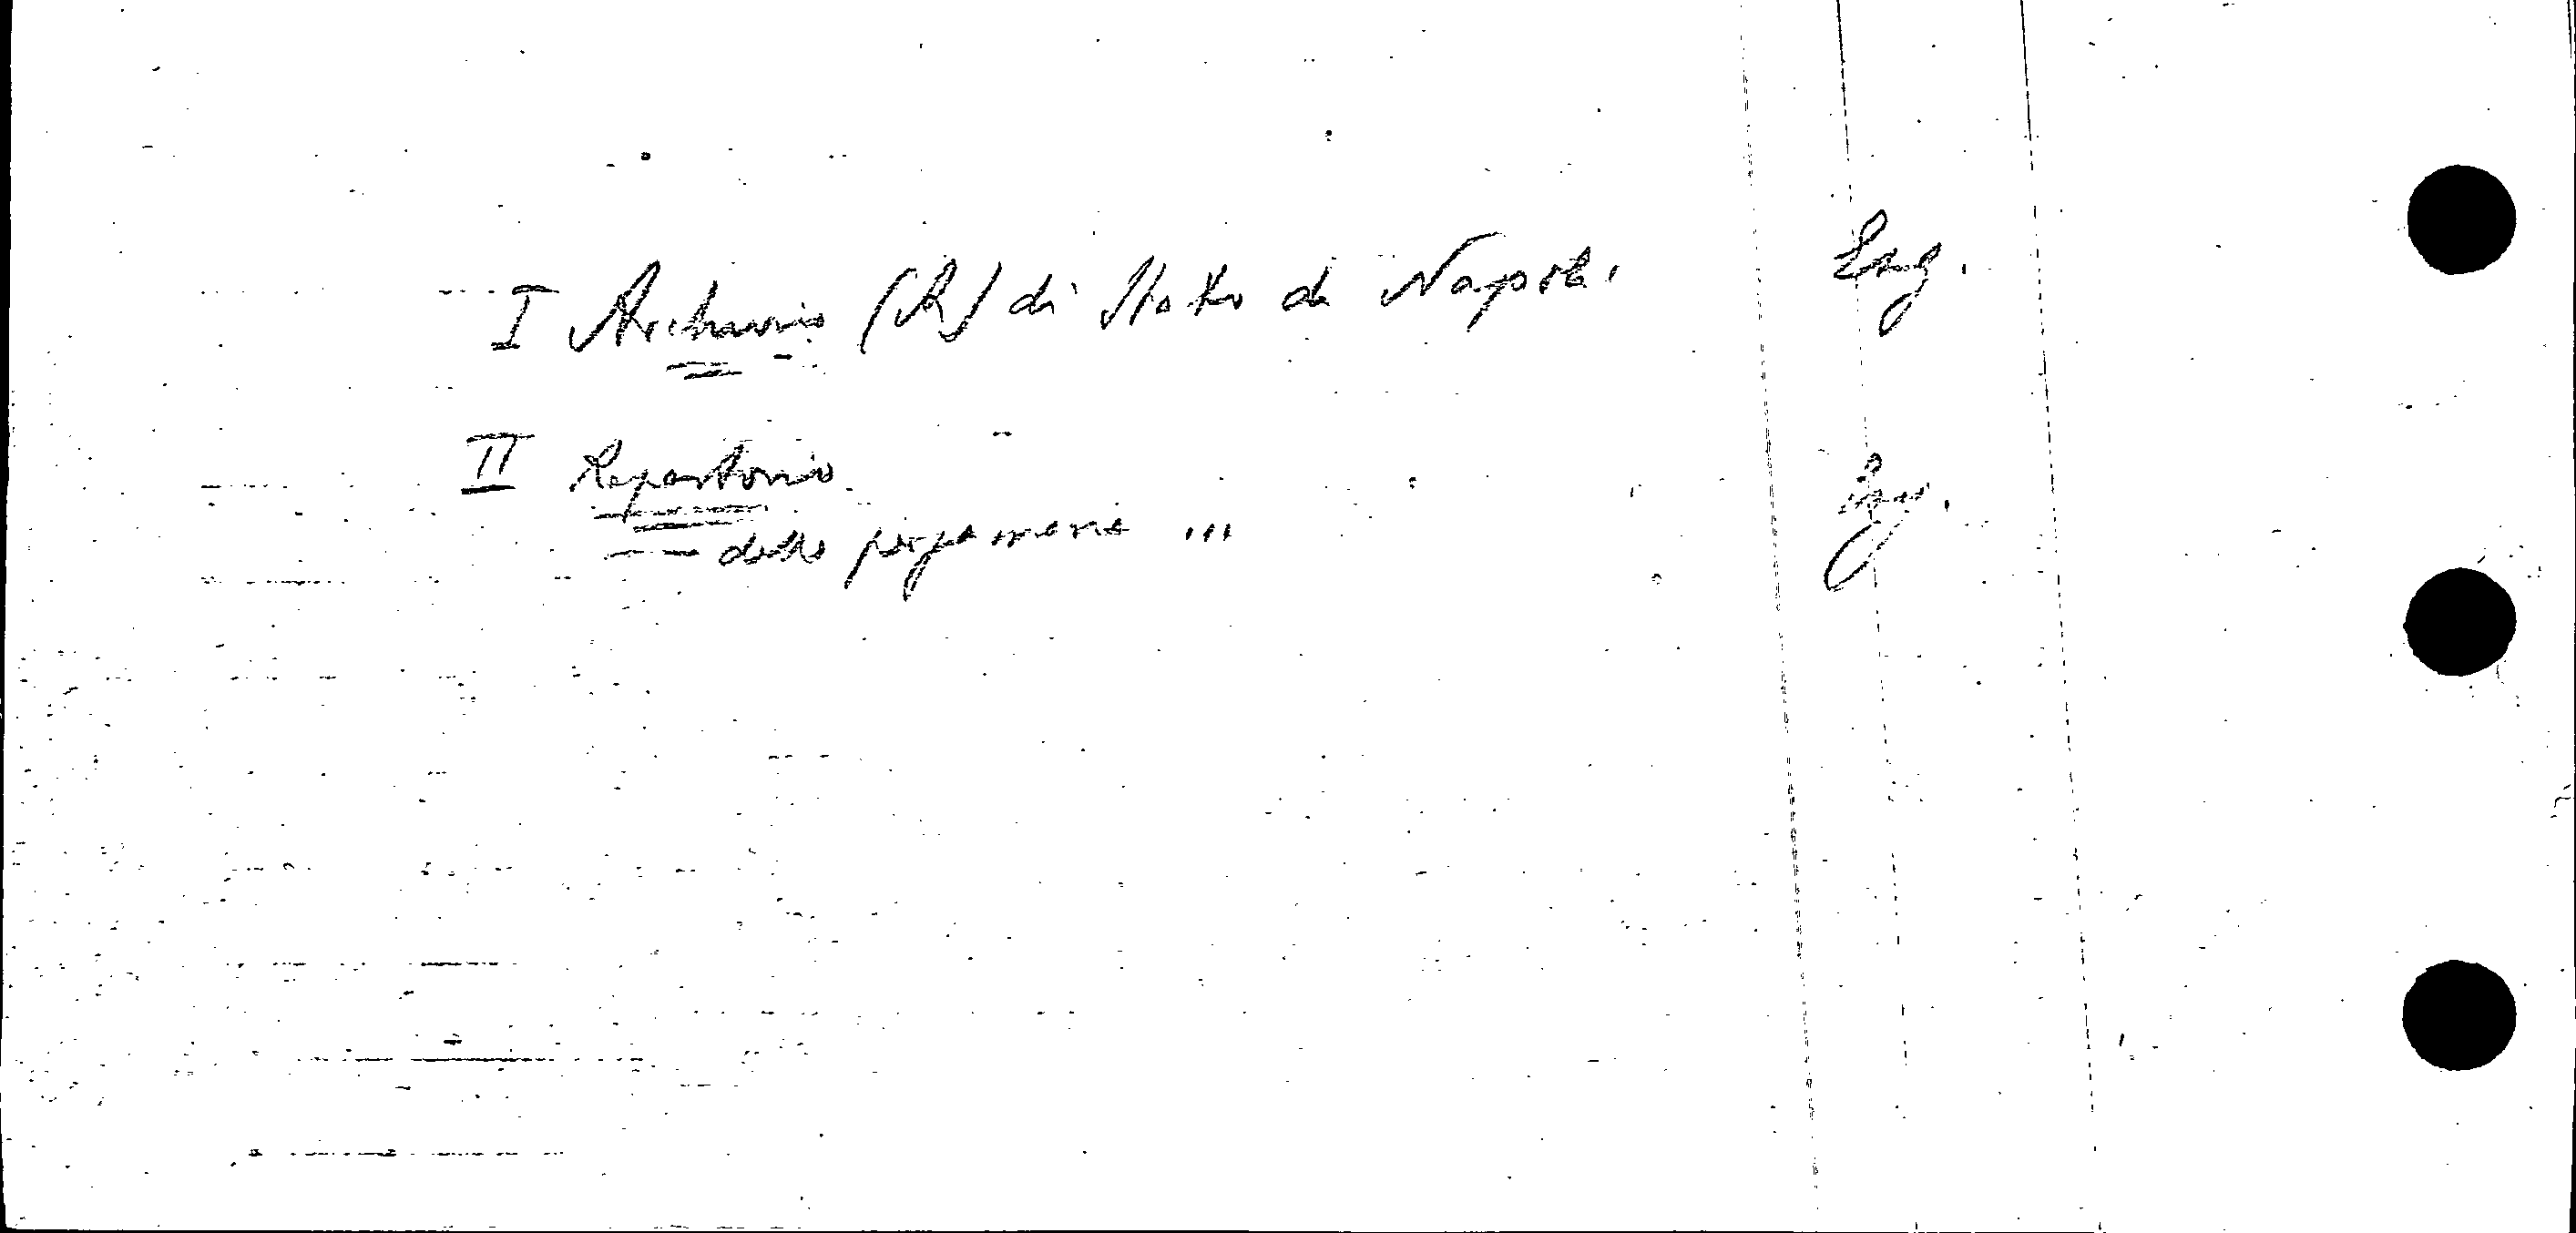 I Archivio (R) di Stato di Napoli. Zng.
II Repertorio
— delle pergamene ...